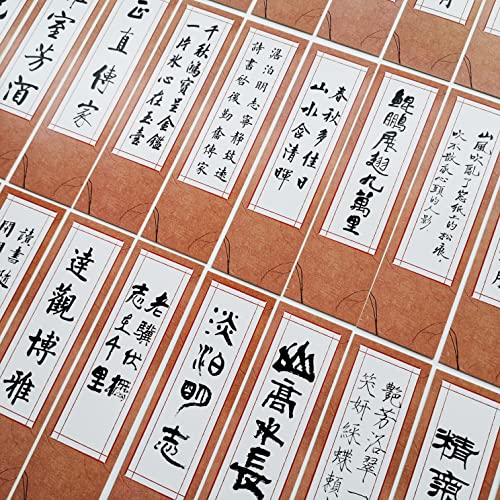 正直傳家
千秋鴻寶呈金鑑
一片冰心在玉壺
淡泊明志寧靜致遠
詩書啓後勤奮傳家
春秋多佳日
山水含清暉
鯤鵬展翅九萬里
山風吹亂了窗紙上的松痕，
吹不散我心頭的人影
讀書隨
達觀博雅
老驥伏櫪
志在千里
淡泊明志
山高水長
艷芳落翠一
笑妍綵蝶頼
精